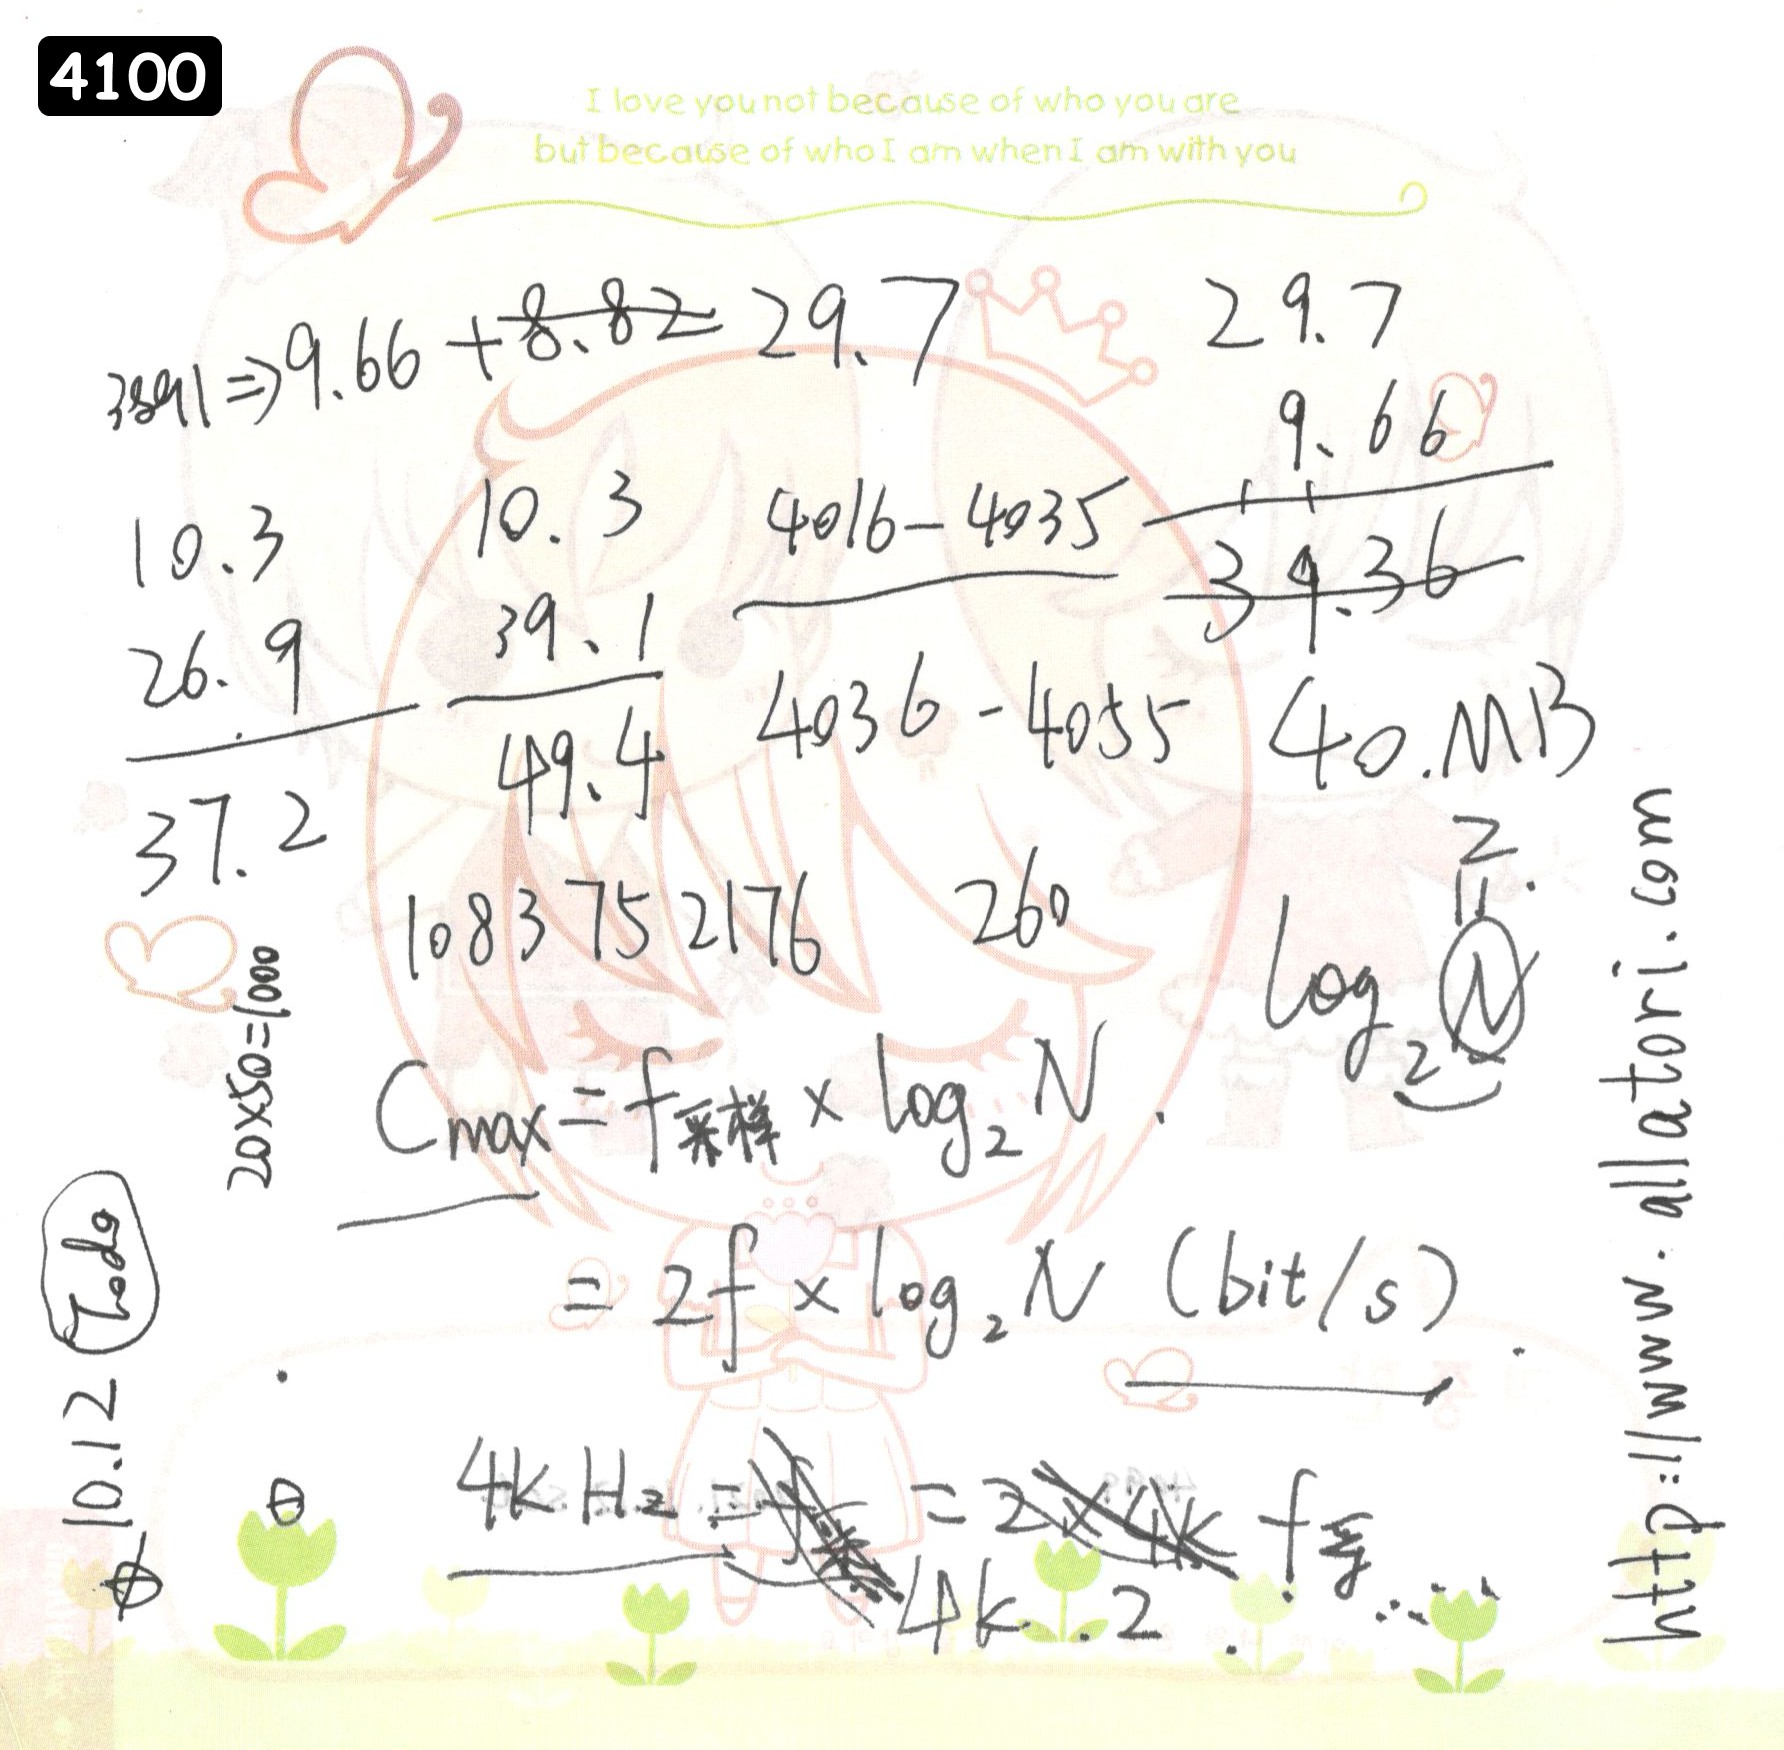 4100
I love you not because of who you are
but because of who I am when I am with you
3891⇒9.66 +8.82 29.7
29.7
9.66
39.36
40.MB
10.3
26.9
37.2
10.3
39.1
49.4
4016-4035
4036-4055
10837521 76
260
20×50=1000
2
=
log₂N
Cmax=f采样×log₂N.
=2f×log₂N (bit/s)
4kHz = = 2×4k f
4k.2
10.12 Todo
http://www.allatori.com